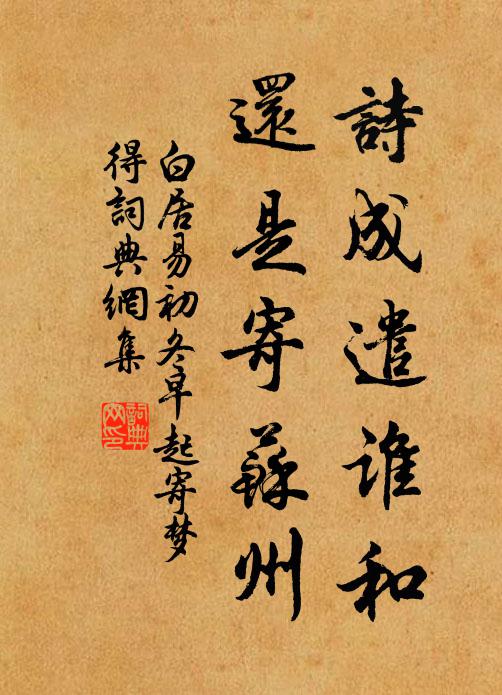 詩成遣誰和
還是寄蘇州
白居易初冬早起寄梦
得詞典網集
詞典
网印